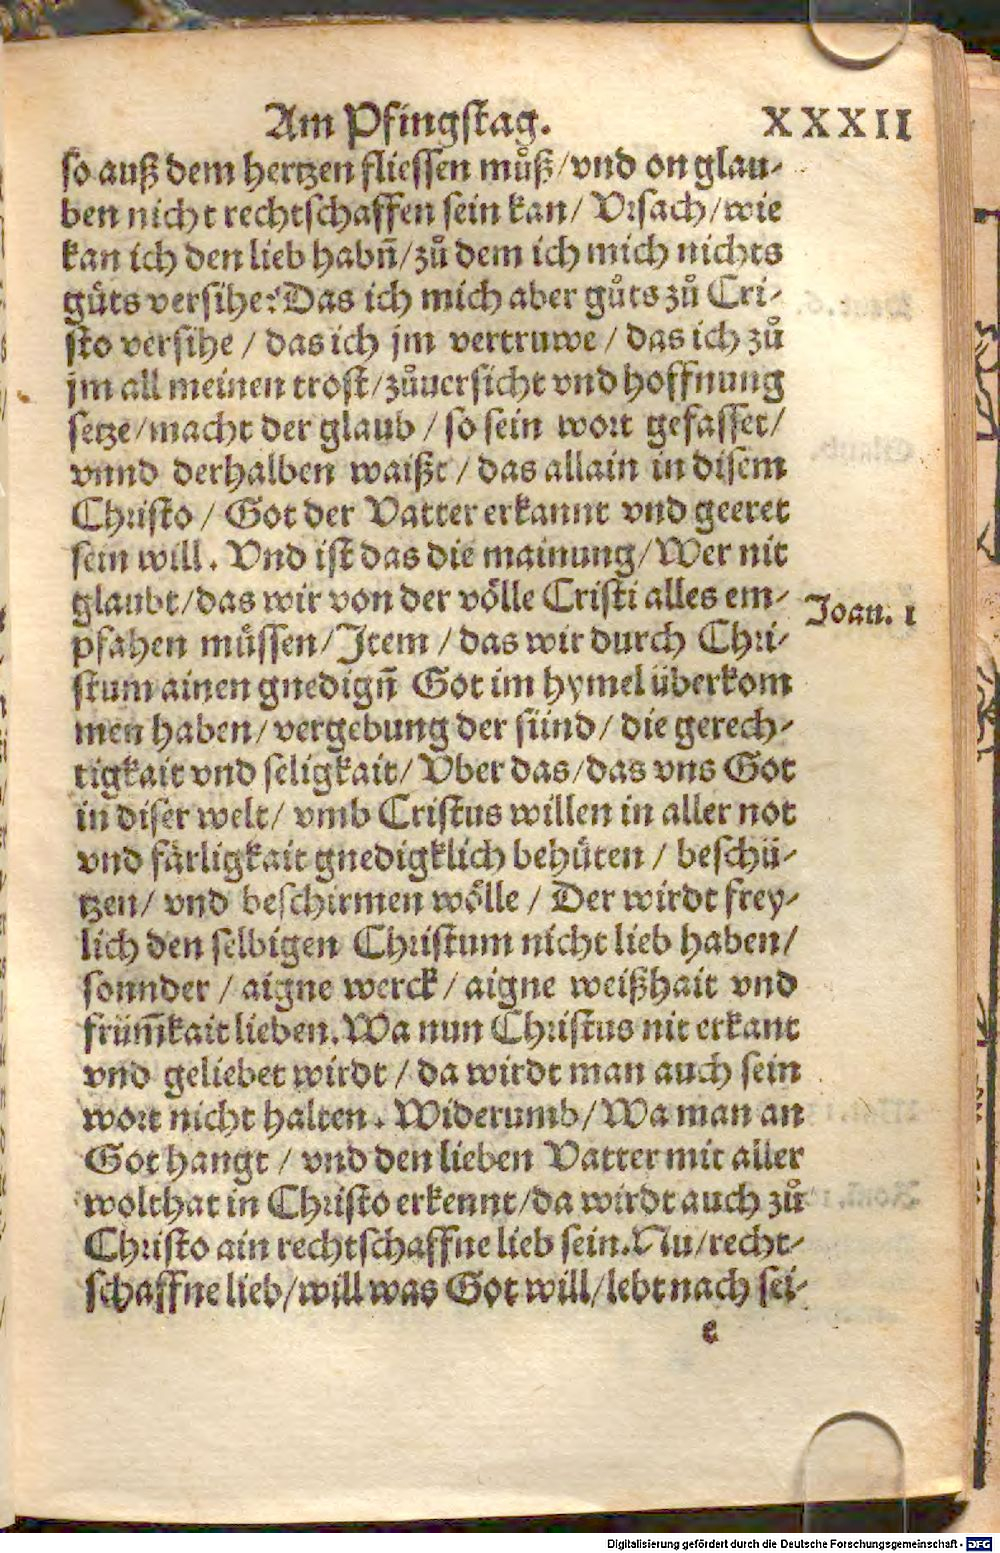 Am Pfingstag. XXXII
so auß dem hertzen fliessen můß/vnd on glau-
ben nicht rechtschaffen sein kan/ Vrsach/wie
kan ich den lieb habñ/zů dem ich mich nichts
gůts versihe? Das ich mich aber gůts zů Cri-
sto versihe / das ich jm vertruwe / das ich zů
jm all meinen trost/zůuersicht vnd hoffnung
setze/macht der glaub / so sein wort gefasset/
vnnd derhalben waißt / das allain in disem
Christo / Got der Vatter erkannt vnd geeret
sein will. Vnd ist das die mainung/Wer nit
glaubt/das wir von der völle Cristi alles em-
Joan. 1
pfahen müssen/Jtem / das wir durch Chri-
stum ainen gnedigñ Got im hymel überkom
men haben/vergebung der sünd/ die gerech-
tigkait vnd seligkait/ Vber das/das vns Got
in diser welt/ vmb Cristus willen in aller not
vnd färligkait gnedigklich behüten / beschü-
tzen/ vnd beschirmen wölle / Der wirdt frey-
lich den selbigen Christum nicht lieb haben/
sonnder / aigne werck / aigne weißhait vnd
früm̃kait lieben. Wa nun Christus nit erkant
vnd geliebet wirdt / da wirdt man auch sein
wort nicht halten. Widerumb/Wa man an
Got hangt / vnd den lieben Vatter mit aller
wolthat in Christo erkennt/da wirdt auch zů
Christo ain rechtschaffne lieb sein. Nu/recht-
schaffne lieb/will was Got will/lebt nach sei-
e
Digitalisierung gefördert durch die Deutsche Forschungsgemeinschaft - DFG